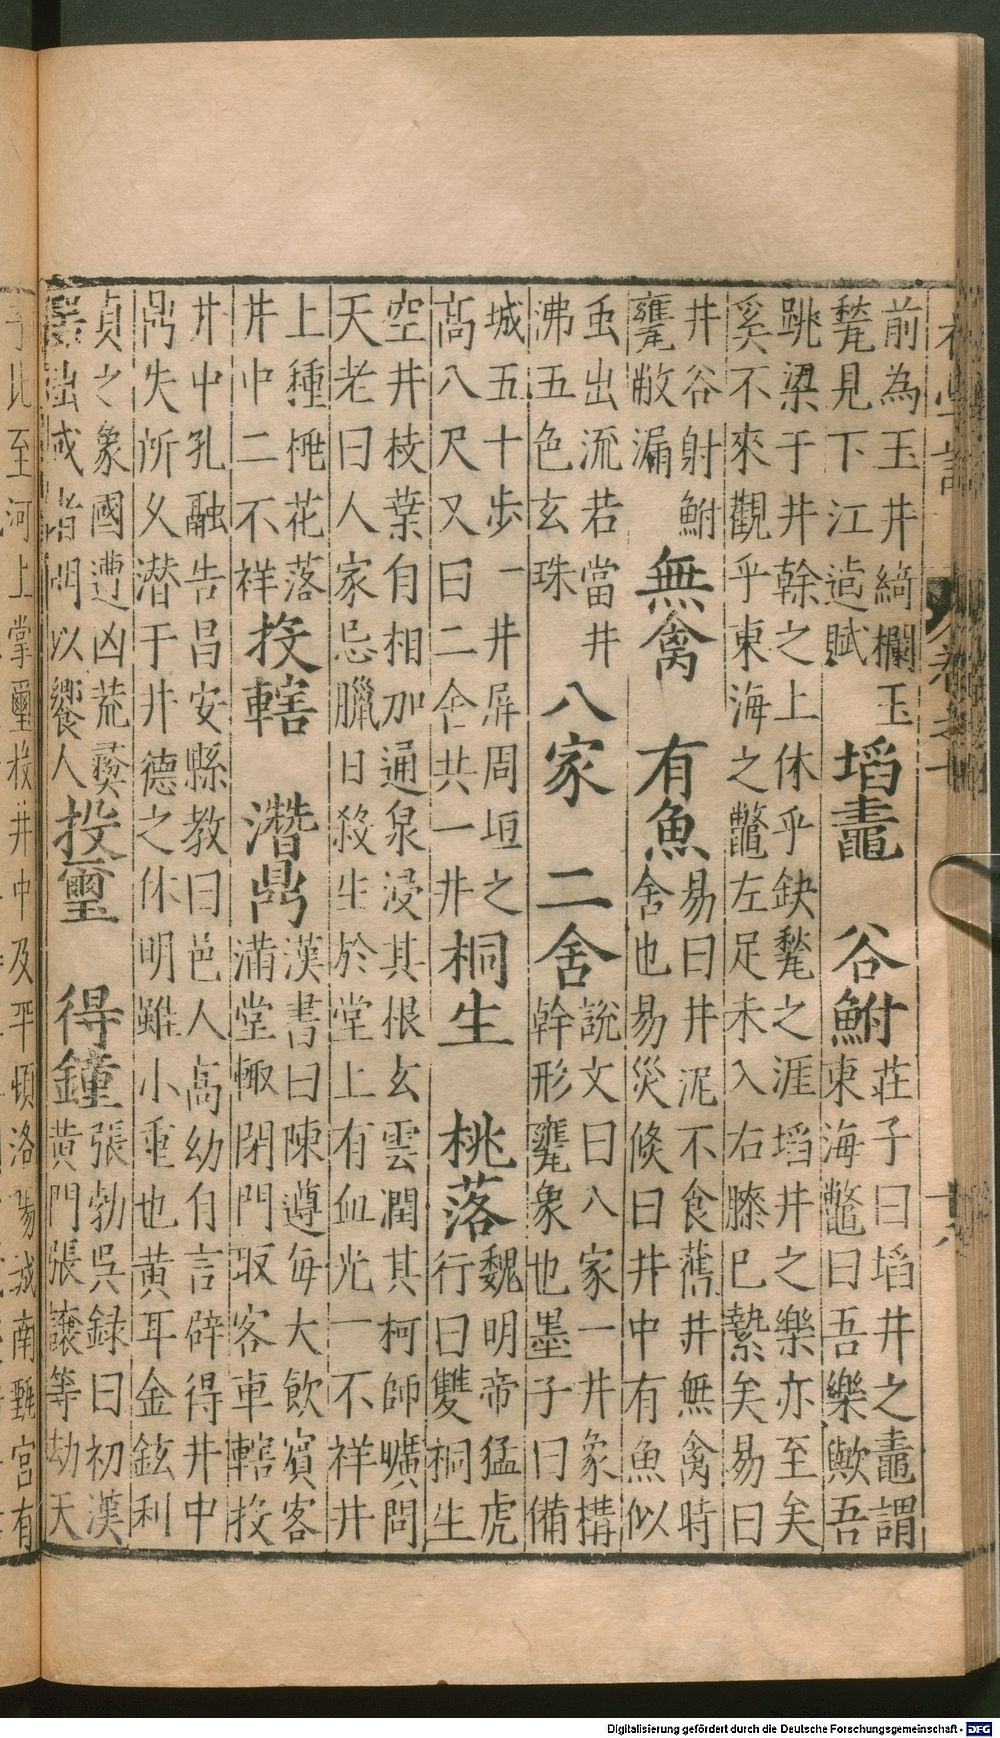 前為玉井綺欄玉
甃見下江逌賦
塙鼃　谷鮒
莊子曰塙井之鼃謂
東海鼈曰吾樂歟吾
跳梁于井幹之上休乎缺甃之涯塙井之樂亦至矣
奚不來觀乎東海之鼈左足未入右膝已縶矣易曰
井谷射鮒
甕敝漏
無禽　有魚
易曰井泥不食舊井無禽時
舍也易災候曰井中有魚似
䖝出流若當井
沸五色玄珠
八家　二舍
說文曰八家一井象構
幹形甕象也墨子曰備
城五十步一井屏周垣之
高八尺又曰二舍共一井
桐生　桃落
魏明帝猛虎
行曰雙桐生
空井枝葉自相加通泉浸其根玄雲潤其柯師曠問
天老曰人家忌臘日殺生於堂上有血光一不祥井
上種桃花落
井中二不祥
投轄　潛鼎
漢書曰陳遵每大飲賓客
滿堂輙閉門取客車轄投
井中孔融告昌安縣教曰邑人高幼自言辟得井中
鼎失所久潛于井德之休明雖小重也黄耳金鉉利
貞之象國遭凶荒彛
器出或者明以饗人
投璽　得鐘
張勃吳録曰初漢
黄門張讓等劫天
子比至河上掌璽投井中及平頓洛陽城南甄宮有
Digitalisierung gefördert durch die Deutsche Forschungsgemeinschaft - DFG